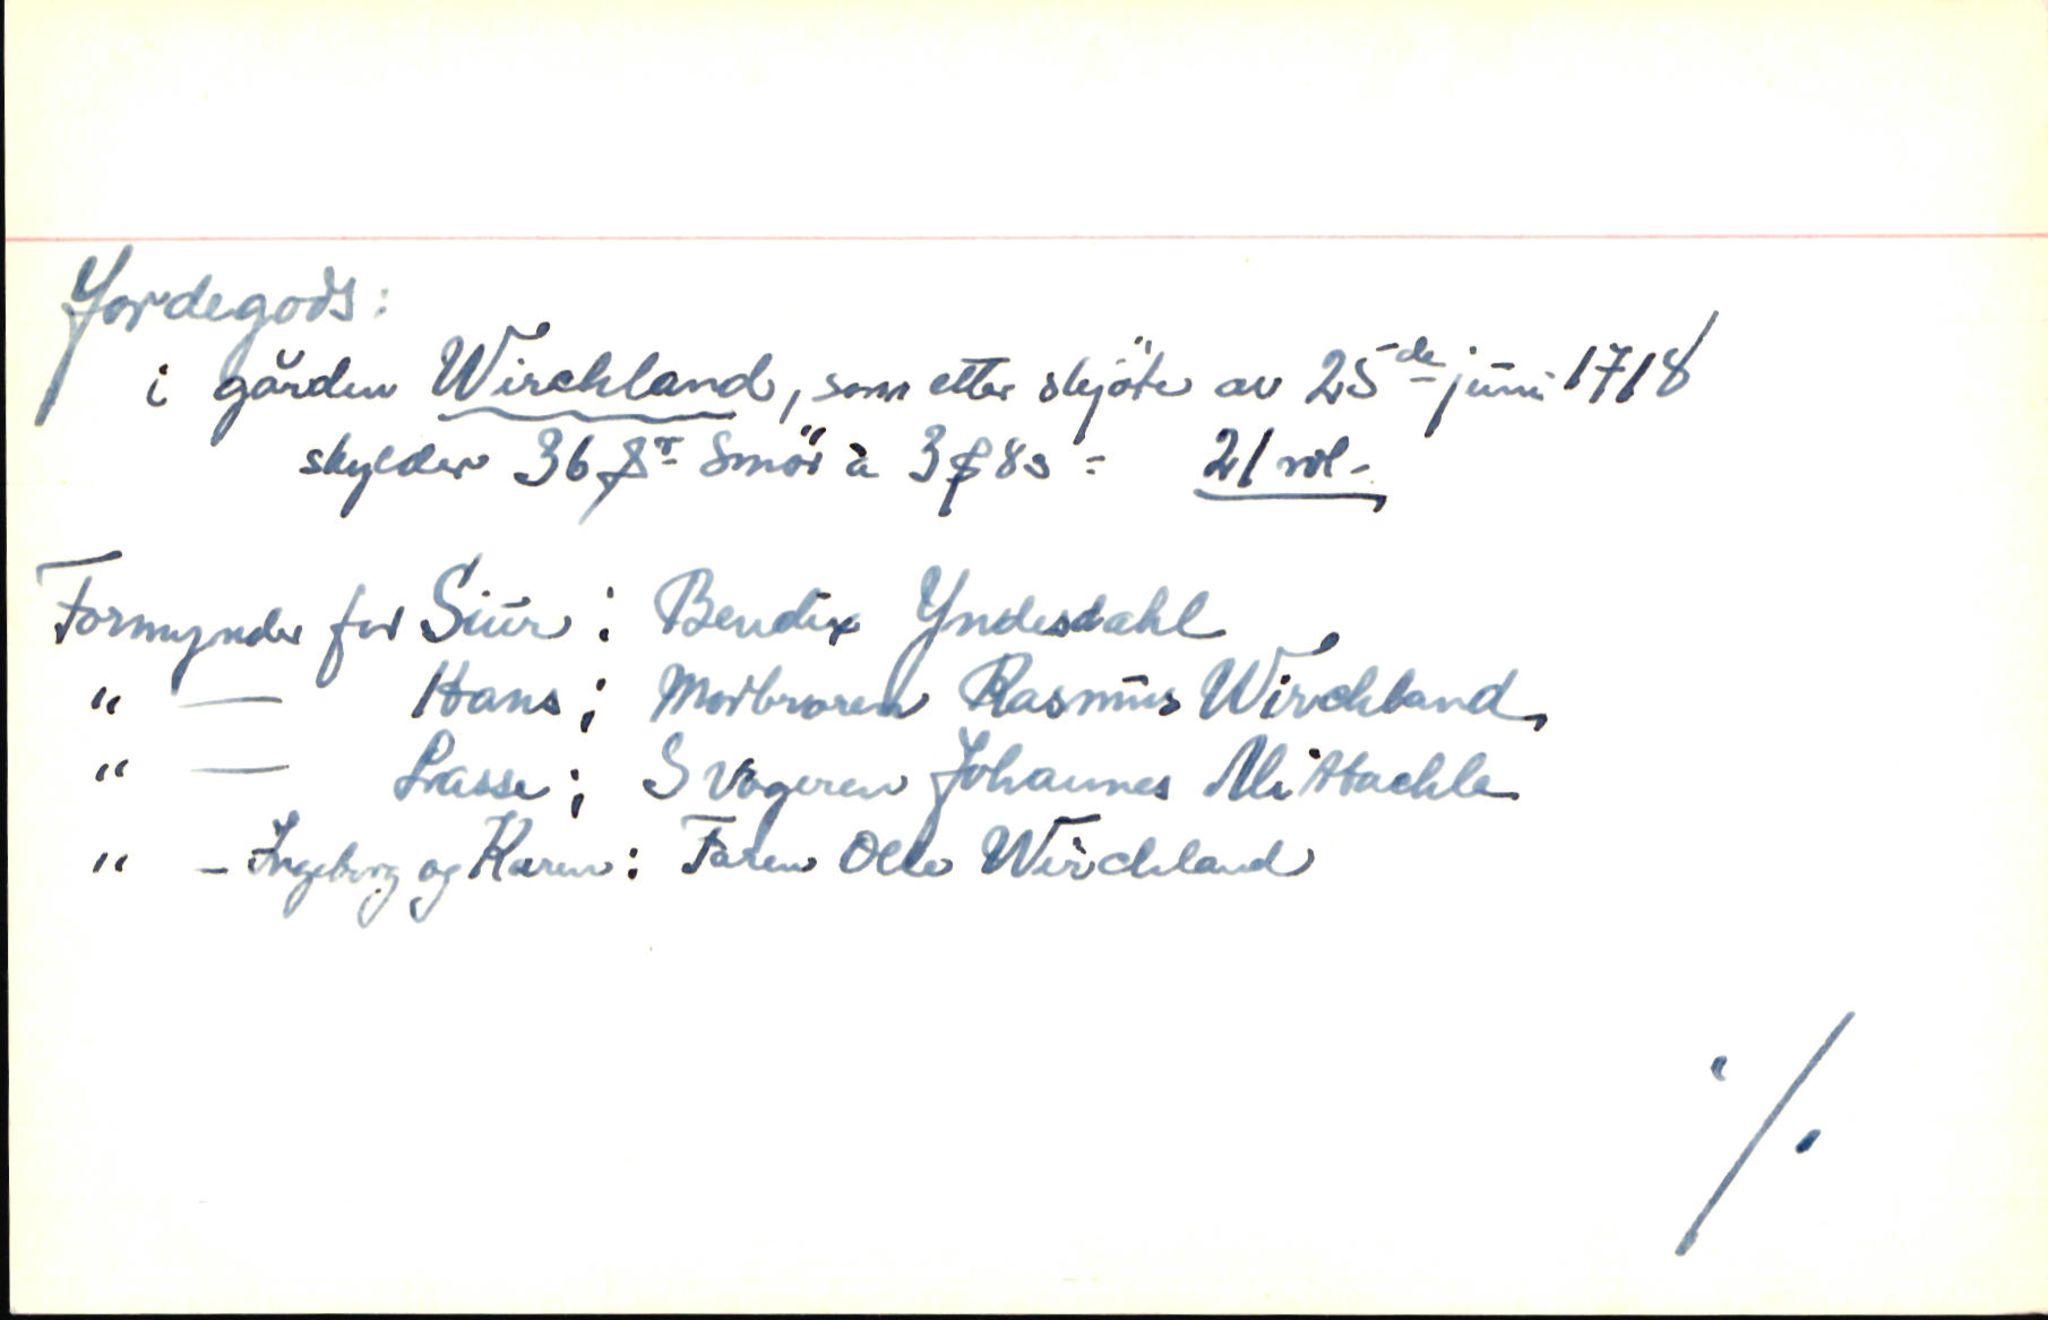 Jordegods:
i gården Wirchland, som etter skjöte av 25de juni 1718
skylder 36 Smör à 3 8s = 21 rdl-
Formynder for Siur: Bendix Yndesdahl
" — Hans; Morbroren Rasmus Wirchland,
" — Lasse; Svogeren Johannes Mittachle
" - Ingeborg og Karen: Faren Olle Wirchland
./.